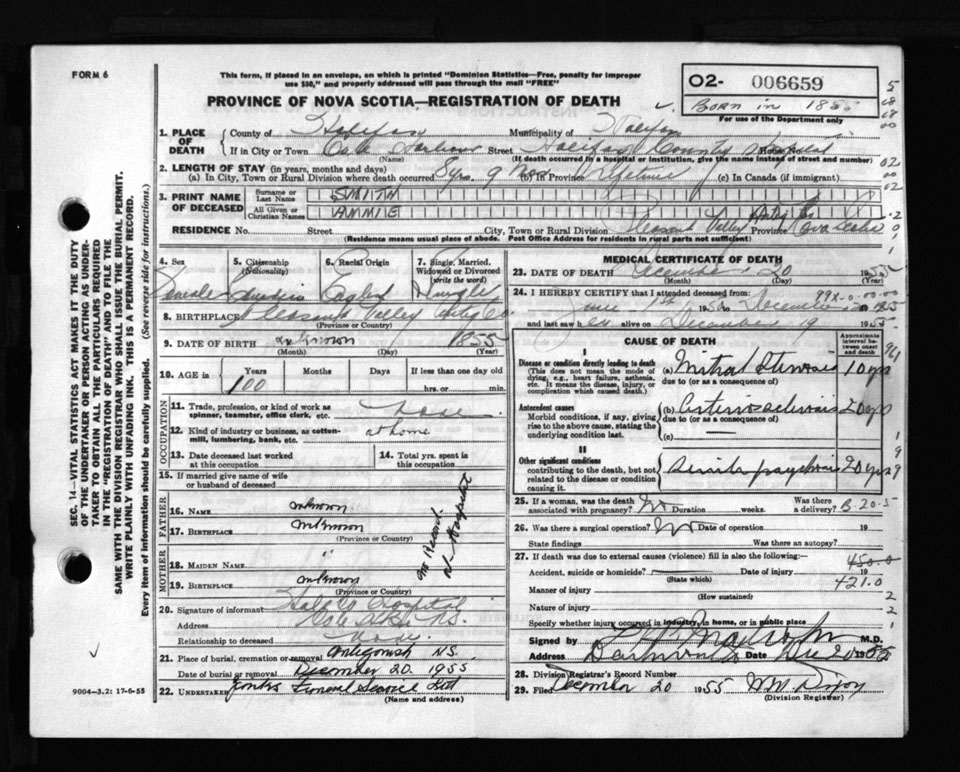 FORM 6
This form, if placed in an envelope, on which is printed "Dominion Statistics—Free, penalty for improper
use $50," and properly addressed will pass through the mail "FREE"
PROVINCE OF NOVA SCOTIA—REGISTRATION OF DEATH
O2- 006659
Born in 1855
For use of the Department only
SEC. 14—VITAL STATISTICS ACT MAKES IT THE DUTY
OF THE UNDERTAKER OR PERSON ACTING AS UNDER-
TAKER TO OBTAIN ALL THE PARTICULARS REQUIRED
IN THE "REGISTRATION OF DEATH" AND TO FILE THE
SAME WITH THE DIVISION REGISTRAR WHO SHALL ISSUE THE BURIAL PERMIT.
WRITE PLAINLY WITH UNFADING INK. THIS IS A PERMANENT RECORD.
Every item of information should be carefully supplied. (See reverse side for instructions.)
1. PLACE OF DEATH
County of Halifax Municipality of Halifax
If in City or Town Cole Harbour Street Halifax County Hospital House No.
(Name) (If death occurred in a hospital or institution, give the name instead of street and number)
2. LENGTH OF STAY (in years, months and days)
(a) In City, Town or Rural Division where death occurred 8 yrs. 9 mos (b) In Province (c) In Canada (if immigrant)
3. PRINT NAME OF DECEASED
Surname or Last Name SMITH
All Given or Christian Names ANNIE
RESIDENCE No. Street City, Town or Rural Division Pleasant Valley Province Nova Scotia
(Residence means usual place of abode. Post Office Address for residents in rural parts not sufficient)
4. Sex Female
5. Citizenship (Nationality) Canadian
6. Racial Origin English
7. Single, Married, Widowed or Divorced (write the word) Single
8. BIRTHPLACE Pleasant Valley Antig Co
(Province or Country)
9. DATE OF BIRTH unknown 1855
(Month) (Day) (Year)
10. AGE in Years Months Days If less than one day old
100 hrs. or min.
OCCUPATION
11. Trade, profession, or kind of work as spinner, teamster, office clerk, etc. None
12. Kind of industry or business, as cotton-mill, lumbering, bank, etc. at home
13. Date deceased last worked at this occupation
14. Total yrs. spent in this occupation
15. If married give name of wife or husband of deceased
FATHER
16. Name unknown
17. Birthplace unknown
(Province or Country)
MOTHER
18. MAIDEN NAME "
19. BIRTHPLACE unknown
(Province or Country)
no Record at Hospital
20. Signature of informant Halifax Co Hospital
Address Cole Hbr N.S.
Relationship to deceased None
21. Place of burial, cremation or removal Antigonish N.S.
Date of burial or removal December 20. 1955
22. UNDERTAKER Funeral Service Ltd
(Name and address)
9004—3.2: 17-6-55
MEDICAL CERTIFICATE OF DEATH
23. DATE OF DEATH December 20 1955
(Month) (Day)
24. I HEREBY CERTIFY that I attended deceased from:
June 1st 1950 to December 20 1955
and last saw her alive on December 19 1955
CAUSE OF DEATH
Approximate interval between onset and death
I
Disease or condition directly leading to death
(This does not mean the mode of dying, e.g., heart failure, asthenia, etc. It means the disease, injury, or complication which caused death.)
(a) Mitral Stenosis 10 yrs
due to (or as a consequence of)
Antecedent causes
Morbid conditions, if any, giving rise to the above cause, stating the underlying condition last.
(b) Arteriosclerosis 20 yrs
due to (or as a consequence of)
(c) —
II
Other significant conditions
contributing to the death, but not related to the disease or condition causing it.
Senile psychosis 20 yrs
25. If a woman, was the death associated with pregnancy? No Duration weeks. Was there a delivery? B-20-5
26. Was there a surgical operation? No Date of operation 19
State findings Was there an autopsy?
27. If death was due to external causes (violence) fill in also the following:— 450.0
Accident, suicide or homicide? Date of injury 19
(State which) 421.0
Manner of injury
(How sustained)
Nature of injury
Specify whether injury occurred in industry, in home, or in public place
Signed by M.D.
Address Dartmouth Date Dec 20 1955
28. Division Registrar's Record Number
29. Filed December 20 1955
(Division Registrar)